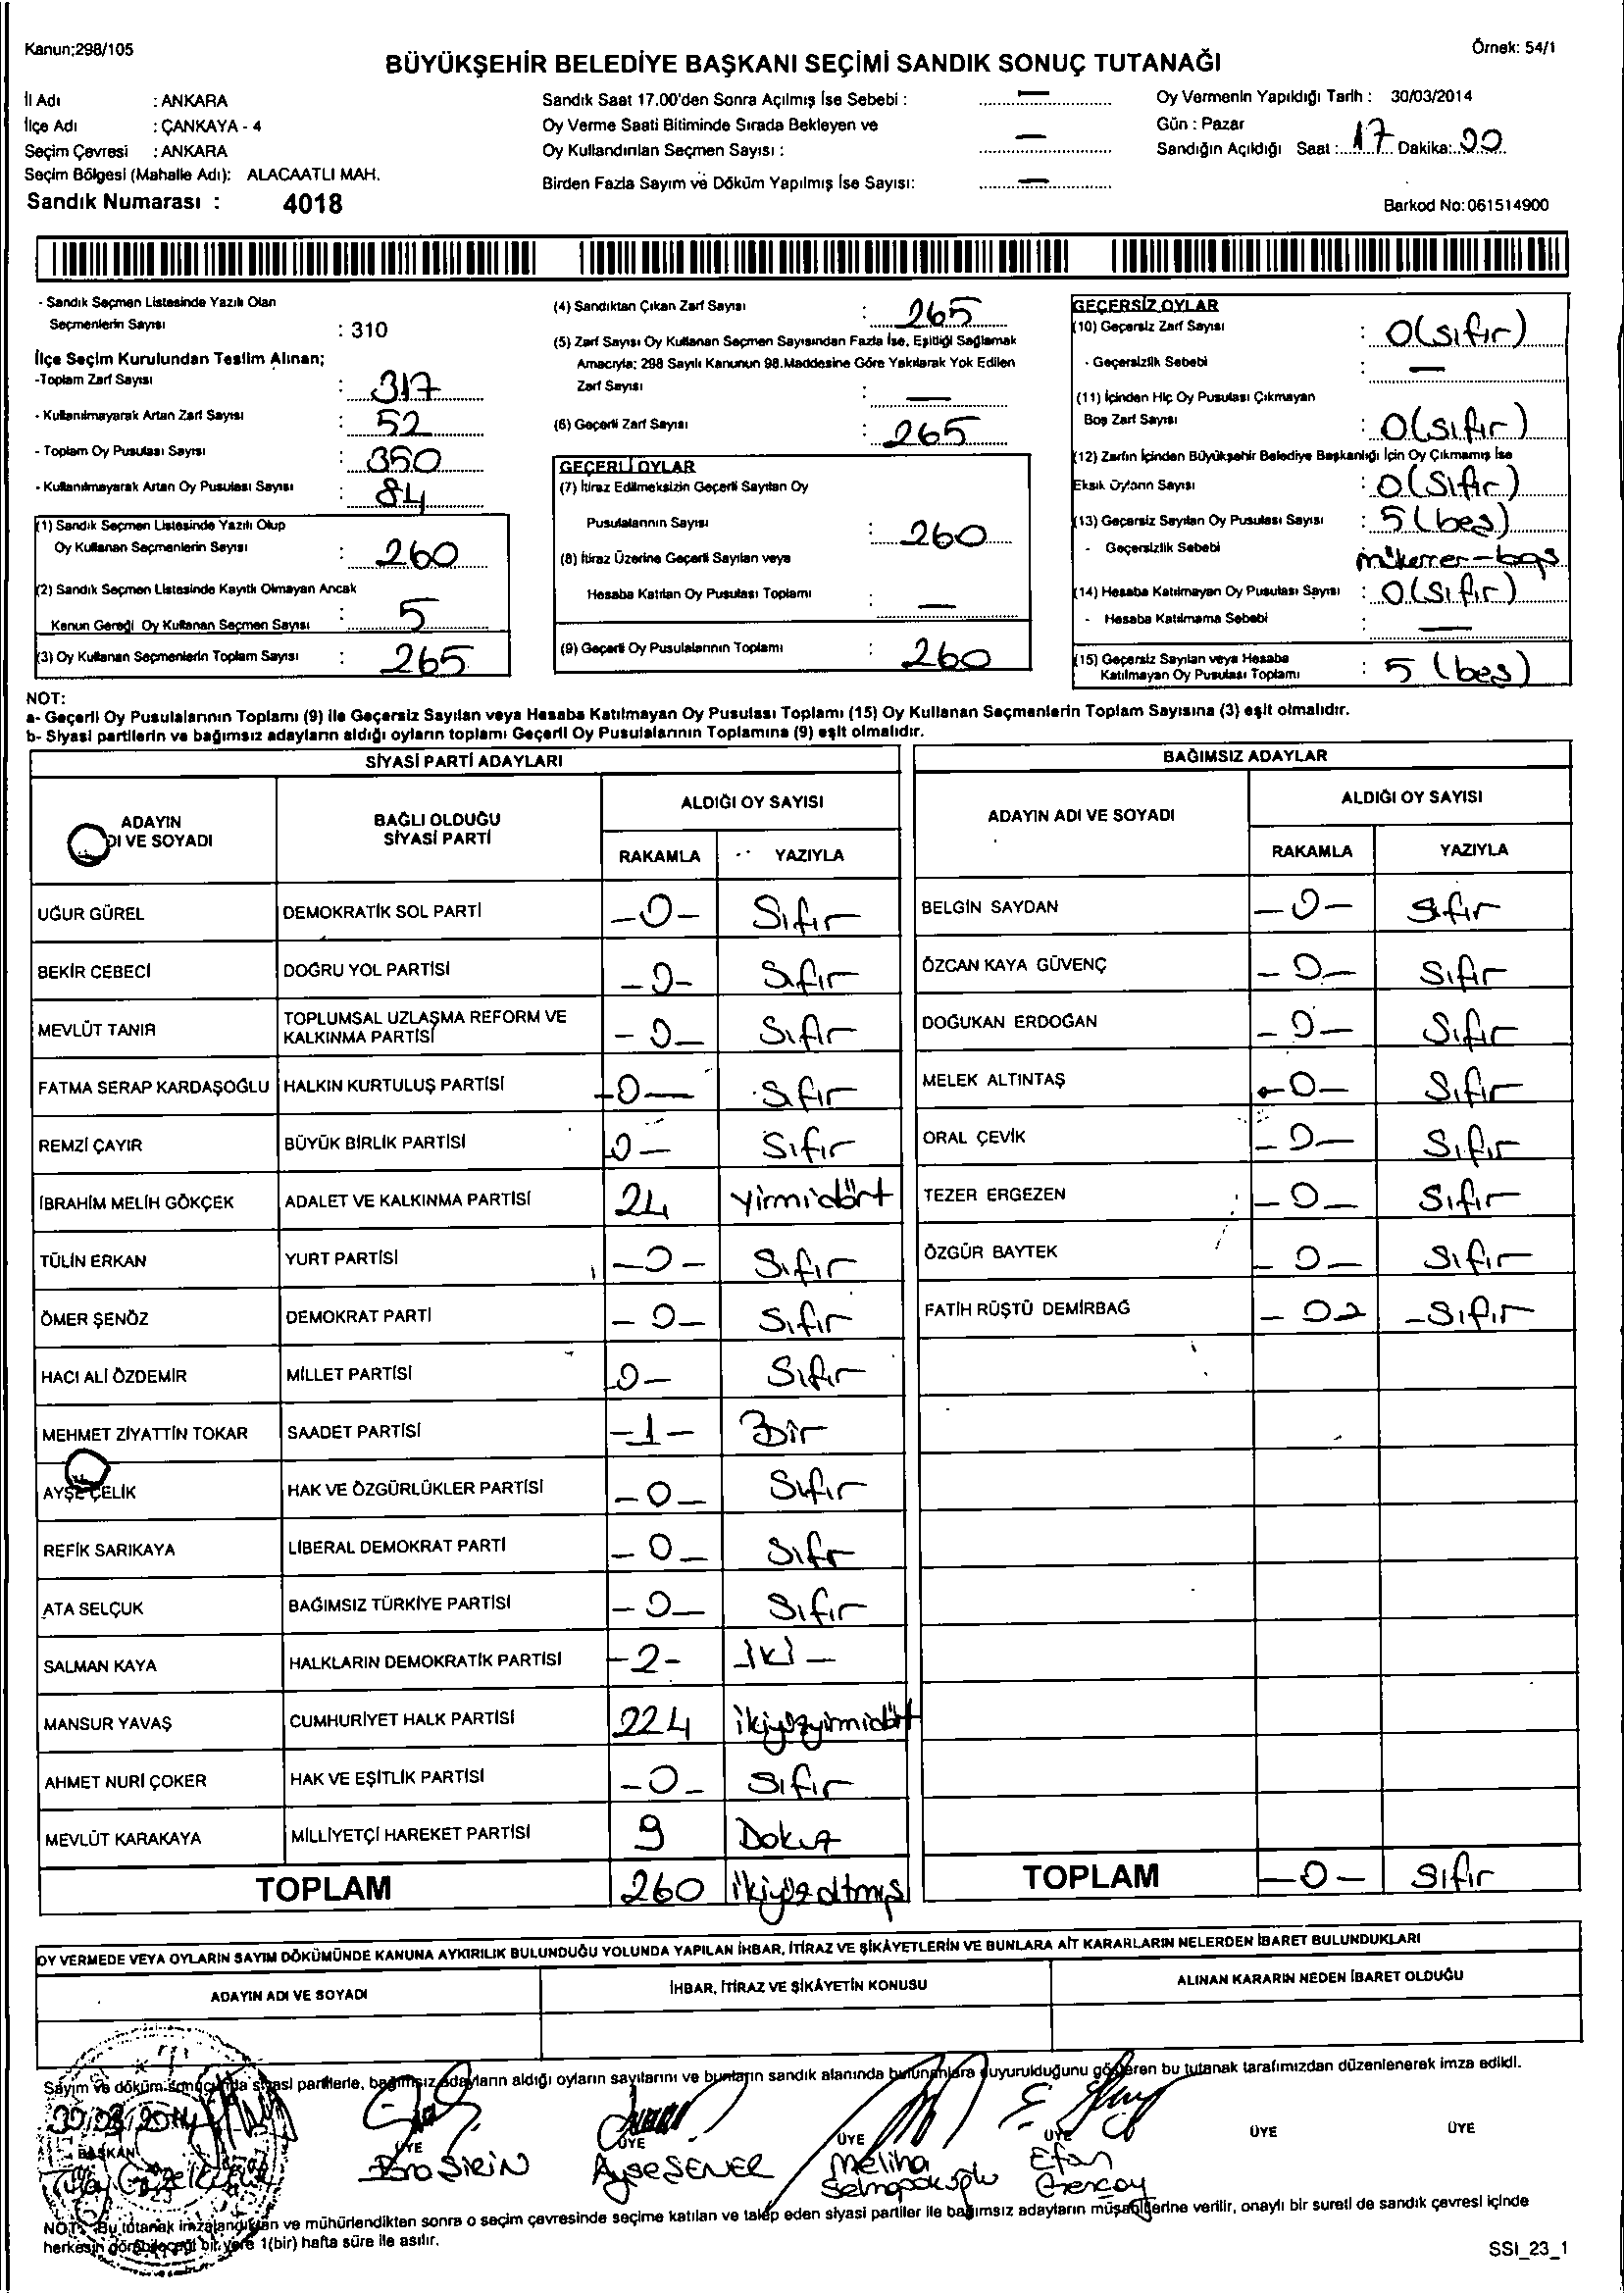 Kanun;298/105
Örnek: 54/1
BÜYÜKŞEHİR BELEDİYE BAŞKANI SEÇİMİ SANDIK SONUÇ TUTANAĞI
İl Adı : ANKARA
İlçe Adı : ÇANKAYA - 4
Seçim Çevresi : ANKARA
Seçim Bölgesi (Mahalle Adı): ALACAATLI MAH.
Sandık Numarası : 4018
Sandık Saat 17.00'den Sonra Açılmış İse Sebebi : —
Oy Verme Saati Bitiminde Sırada Bekleyen ve
Oy Kullandırılan Seçmen Sayısı : —
Birden Fazla Sayım ve Döküm Yapılmış İse Sayısı: —
Oy Vermenin Yapıldığı Tarih : 30/03/2014
Gün : Pazar
Sandığın Açıldığı Saat : 17 Dakika: 00
Barkod No: 061514900
- Sandık Seçmen Listesinde Yazılı Olan
Seçmenlerin Sayısı : 310
İlçe Seçim Kurulundan Teslim Alınan;
-Toplam Zarf Sayısı : 317
- Kullanılmayarak Artan Zarf Sayısı : 52
- Toplam Oy Pusulası Sayısı : 350
- Kullanılmayarak Artan Oy Pusulası Sayısı : 84
(1) Sandık Seçmen Listesinde Yazılı Olup
Oy Kullanan Seçmenlerin Sayısı : 260
(2) Sandık Seçmen Listesinde Kayıtlı Olmayan Ancak
Kanun Gereği Oy Kullanan Seçmen Sayısı : 5
(3) Oy Kullanan Seçmenlerin Toplam Sayısı : 265
(4) Sandıktan Çıkan Zarf Sayısı : 265
(5) Zarf Sayısı Oy Kullanan Seçmen Sayısından Fazla İse, Eşitliği Sağlamak
Amacıyla; 298 Sayılı Kanunun 98.Maddesine Göre Yakılarak Yok Edilen
Zarf Sayısı : —
(6) Geçerli Zarf Sayısı : 265
GEÇERLİ OYLAR
(7) İtiraz Edilmeksizin Geçerli Sayılan Oy
Pusulalarının Sayısı : 260
(8) İtiraz Üzerine Geçerli Sayılan veya
Hesaba Katılan Oy Pusulası Toplamı : —
(9) Geçerli Oy Pusulalarının Toplamı : 260
GEÇERSİZ OYLAR
(10) Geçersiz Zarf Sayısı : 0(sıfır)
- Geçersizlik Sebebi : —
(11) İçinden Hiç Oy Pusulası Çıkmayan
Boş Zarf Sayısı : 0(sıfır)
(12) Zarfın İçinden Büyükşehir Belediye Başkanlığı İçin Oy Çıkmamış İse
Eksik Oyların Sayısı : 0(sıfır)
(13) Geçersiz Sayılan Oy Pusulası Sayısı : 5(beş)
- Geçersizlik Sebebi mükerrer-boş
(14) Hesaba Katılmayan Oy Pusulası Sayısı : 0(sıfır)
- Hesaba Katılmama Sebebi : —
(15) Geçersiz Sayılan veya Hesaba
Katılmayan Oy Pusulası Toplamı : 5 (beş)
NOT:
a- Geçerli Oy Pusulalarının Toplamı (9) ile Geçersiz Sayılan veya Hesaba Katılmayan Oy Pusulası Toplamı (15) Oy Kullanan Seçmenlerin Toplam Sayısına (3) eşit olmalıdır.
b- Siyasi partilerin ve bağımsız adayların aldığı oyların toplamı Geçerli Oy Pusulalarının Toplamına (9) eşit olmalıdır.
SİYASİ PARTİ ADAYLARI
ADAYIN
DI VE SOYADI
BAĞLI OLDUĞU
SİYASİ PARTİ
ALDIĞI OY SAYISI
RAKAMLA YAZIYLA
UĞUR GÜREL DEMOKRATİK SOL PARTİ -0- Sıfır
BEKİR CEBECİ DOĞRU YOL PARTİSİ -0- Sıfır
MEVLÜT TANIR TOPLUMSAL UZLAŞMA REFORM VE
KALKINMA PARTİSİ -0- Sıfır
FATMA SERAP KARDAŞOĞLU HALKIN KURTULUŞ PARTİSİ -0- Sıfır
REMZİ ÇAYIR BÜYÜK BİRLİK PARTİSİ -0- Sıfır
İBRAHİM MELİH GÖKÇEK ADALET VE KALKINMA PARTİSİ 24 Yirmidört
TÜLİN ERKAN YURT PARTİSİ -0- Sıfır
ÖMER ŞENÖZ DEMOKRAT PARTİ -0- Sıfır
HACI ALİ ÖZDEMİR MİLLET PARTİSİ -0- Sıfır
MEHMET ZİYATTİN TOKAR SAADET PARTİSİ -1- Bir
AYŞE ÇELİK HAK VE ÖZGÜRLÜKLER PARTİSİ -0- Sıfır
REFİK SARIKAYA LİBERAL DEMOKRAT PARTİ -0- Sıfır
ATA SELÇUK BAĞIMSIZ TÜRKİYE PARTİSİ -0- Sıfır
SALMAN KAYA HALKLARIN DEMOKRATİK PARTİSİ -2- İki -
MANSUR YAVAŞ CUMHURİYET HALK PARTİSİ 224 ikiyüzyirmidört
AHMET NURİ ÇOKER HAK VE EŞİTLİK PARTİSİ -0- Sıfır
MEVLÜT KARAKAYA MİLLİYETÇİ HAREKET PARTİSİ 9 Dokuz
TOPLAM 260 ikiyüzaltmış
BAĞIMSIZ ADAYLAR
ADAYIN ADI VE SOYADI
ALDIĞI OY SAYISI
RAKAMLA YAZIYLA
BELGİN SAYDAN -0- Sıfır
ÖZCAN KAYA GÜVENÇ -0- Sıfır
DOĞUKAN ERDOĞAN -0- Sıfır
MELEK ALTINTAŞ -0- Sıfır
ORAL ÇEVİK -0- Sıfır
TEZER ERGEZEN -0- Sıfır
ÖZGÜR BAYTEK -0- Sıfır
FATİH RÜŞTÜ DEMİRBAĞ -0- -Sıfır
TOPLAM -0- Sıfır
OY VERMEDE VEYA OYLARIN SAYIM DÖKÜMÜNDE KANUNA AYKIRILIK BULUNDUĞU YOLUNDA YAPILAN İHBAR, İTİRAZ VE ŞİKÂYETLERİN VE BUNLARA AİT KARARLARIN NELERDEN İBARET BULUNDUKLARI
ADAYIN ADI VE SOYADI İHBAR, İTİRAZ VE ŞİKÂYETİN KONUSU ALINAN KARARIN NEDEN İBARET OLDUĞU
Sayım ve döküm sonucunda siyasi partilerle, bağımsız adayların aldığı oyların sayılarını ve bunların sandık alanında bulunanlara duyurulduğunu gösteren bu tutanak tarafımızdan düzenlenerek imza edildi.
30.03.2014
BAŞKAN ÜYE ÜYE ÜYE ÜYE ÜYE ÜYE
ŞİRİN Ayşe ŞENEL Meliha Efan
NOT: Bu tutanak imzalandıktan ve mühürlendikten sonra o seçim çevresinde seçime katılan ve talep eden siyasi partiler ile bağımsız adayların müşahitlerine verilir, onaylı bir sureti de sandık çevresi içinde
herkesin görebileceği bir yere 1(bir) hafta süre ile asılır.
SSI_23_1